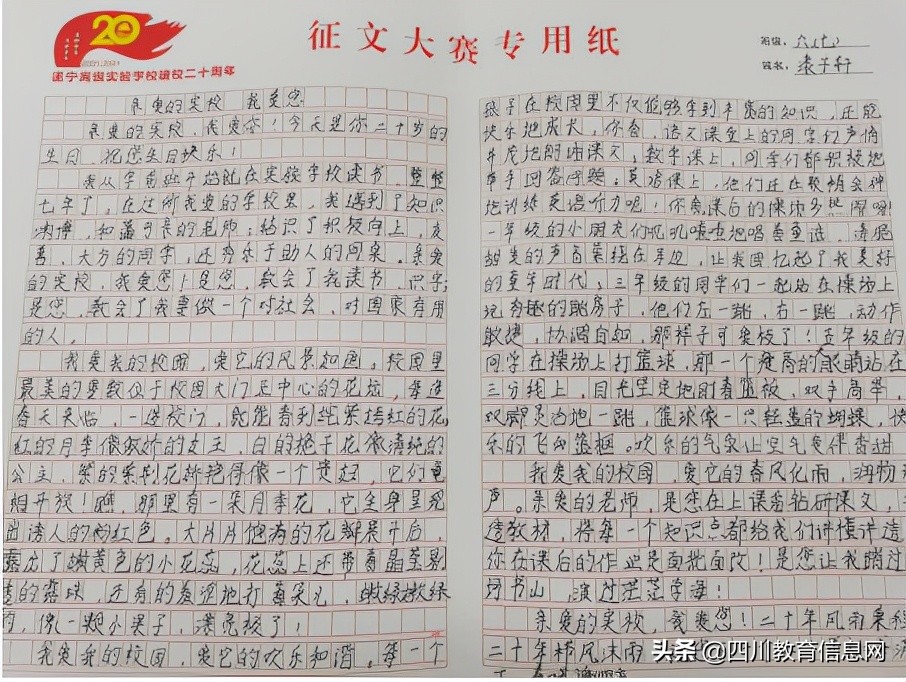 20
2001-2021
遂宁高级实验学校建校二十周年
征文大赛专用纸
班级：六（七）
姓名：
亲爱的实校 我爱您
亲爱的实校，我爱您！今天是你二十岁的
生日，祝您生日快乐！
我从学前班开始就在实验学校读书，整整
七年了。在这所我爱的学校里，我遇到了知识
渊博，和蔼可亲的老师；结识了积极向上，友
善、大方的同学，还有乐于助人的同桌。亲爱
的实校，我爱您！是您，教会了我读书、识字；
是您，教会了我要做一个对社会、对国家有用
的人。
我爱我的校园，爱它的风景如画，校园里
最美的要数位于校园大门正中心的花坛，每逢
春天来临，一进校门，就能看到姹紫嫣红的花，
红的月季像娇的女王，白的栀子花像清纯的
公主，紫的紫荆花鲜艳得像一个贵妇，它们竞
相开放！瞧，那里有一朵月季花，它全身呈现
出诱人的粉红色。大片片饱满的花瓣展开后，
露出了嫩黄色的小花蕊，花蕊上还带着晶莹剔
透的露珠，还有的羞涩地打着朵儿，嫩绿嫩绿
的，像一颗小果子，漂亮极了！
我爱我的校园，爱它的欢乐和谐。每一个
孩子在校园里不仅能够学到丰富的知识，还能
快乐地成长，你看，语文课堂上的同学们声情
并茂地朗诵课文；数学课上，同学们都积极地
举手回答问题；英语课上，他们正在聚精会神
地训练英语听力呢！你看课后的操场多热闹啊！
一年级的小朋友们叽叽喳喳地唱着童谣，清脆
甜美的声音萦绕在耳边，让我回忆起了我美好
的童年时代；三年级的同学们一起站在操场上
玩有趣的跳房子，他们左一跳，右一跳，动作
敏捷，协调自如，那样子可爱极了！五年级的
同学在操场上打篮球，那一个高高的大眼睛站在
三分线上，目光坚定地盯着篮板，双手高举，
双脚灵活地一跳，篮球像一只轻盈的蝴蝶，快
乐的飞向篮框。欢乐的气氛让空气变得香甜
我爱我的校园，爱它的春风化雨，润物无
声。亲爱的老师，是您在上课前钻研课文，
透教材，将每一个知识点都给我们讲懂讲透
你在课后的作业是面批面改！是您让我踏过
书山，渡过茫茫学海！
亲爱的实校，我爱您！二十年风雨兼程
二十年栉风沐雨
头条 @四川教育信息网